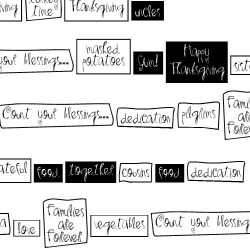 time Thanksgiving uncles
your blessings... mashed potatoes yum! Happy Thanksgiving
Count your blessings... dedication pilgrims Families are Forever
grateful food together cousins food dedication
love Families are Forever vegetables Count your blessings